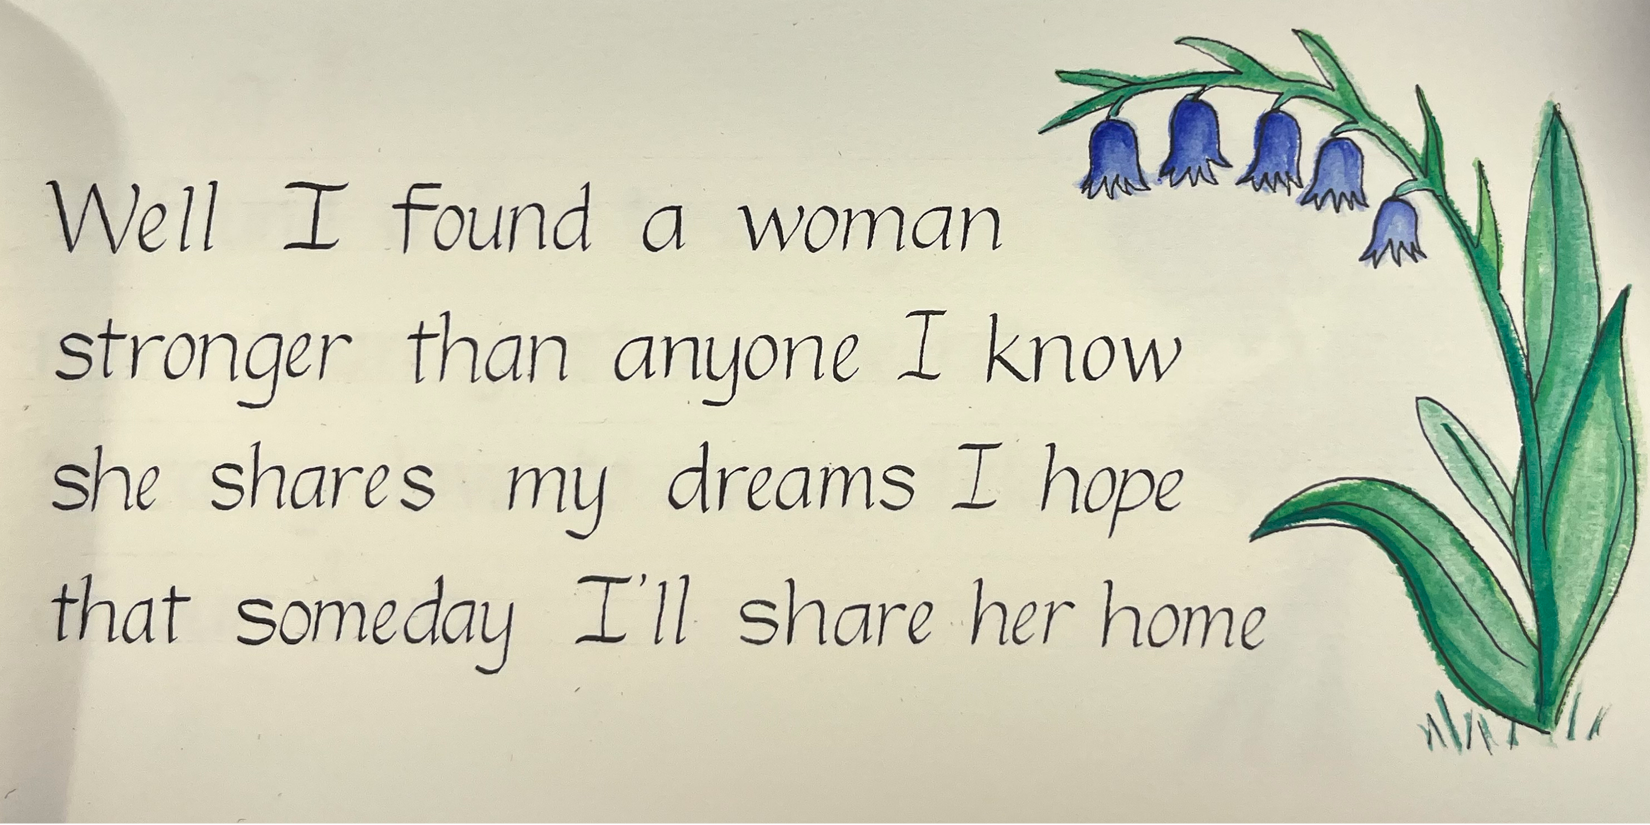 Well I found a woman
stronger than anyone I know
she shares my dreams I hope
that someday I'll share her home